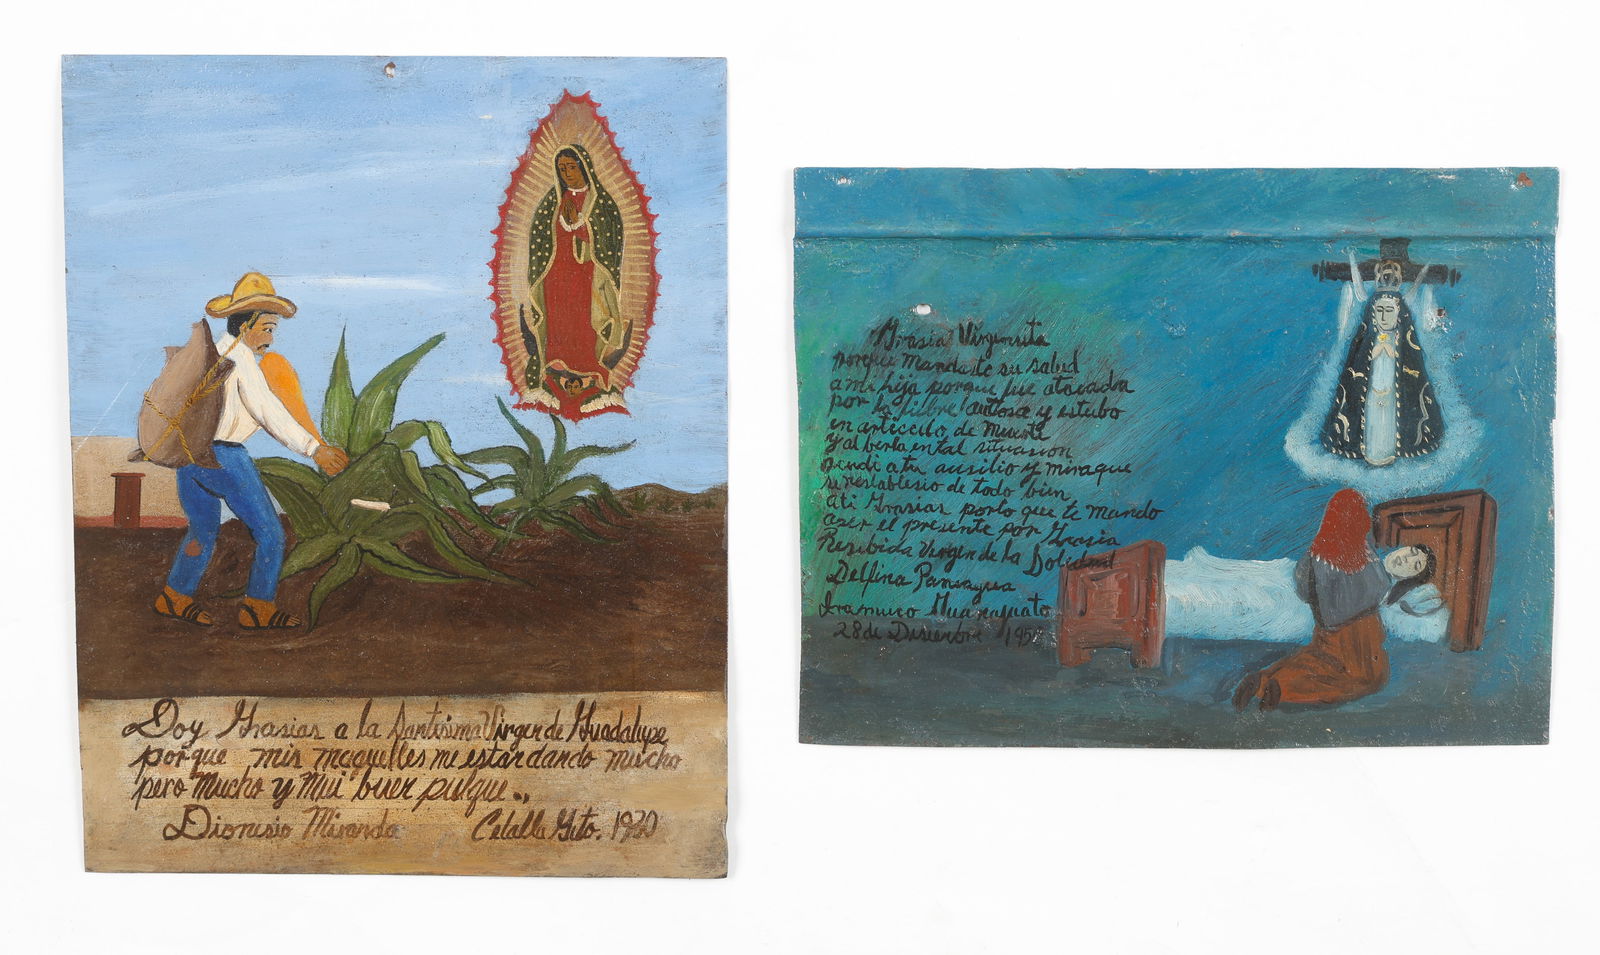 Doy Grasias a la Santísima Virgen de Guadalupe
porque mis magulles me estan dando mucho
pero mucho y Mui buen pulque..
Dionisio Miranda Celalla Gto. 1920
Grasias Virgensita
porque Mandaste su salud
a mi hija porque fue atacada
por la fiebre y estubo
en articcelo de Muerte
y al berla en tal situasion
acudi a tu ausilio y mira que
se restablesio de todo bien
a ti Grasias por lo que te mando
aser el presente por Grasia
Resibida Virgen de la Soledad
Delfina Paniagua
Iramuco Guanajuato
28 de Disienbre